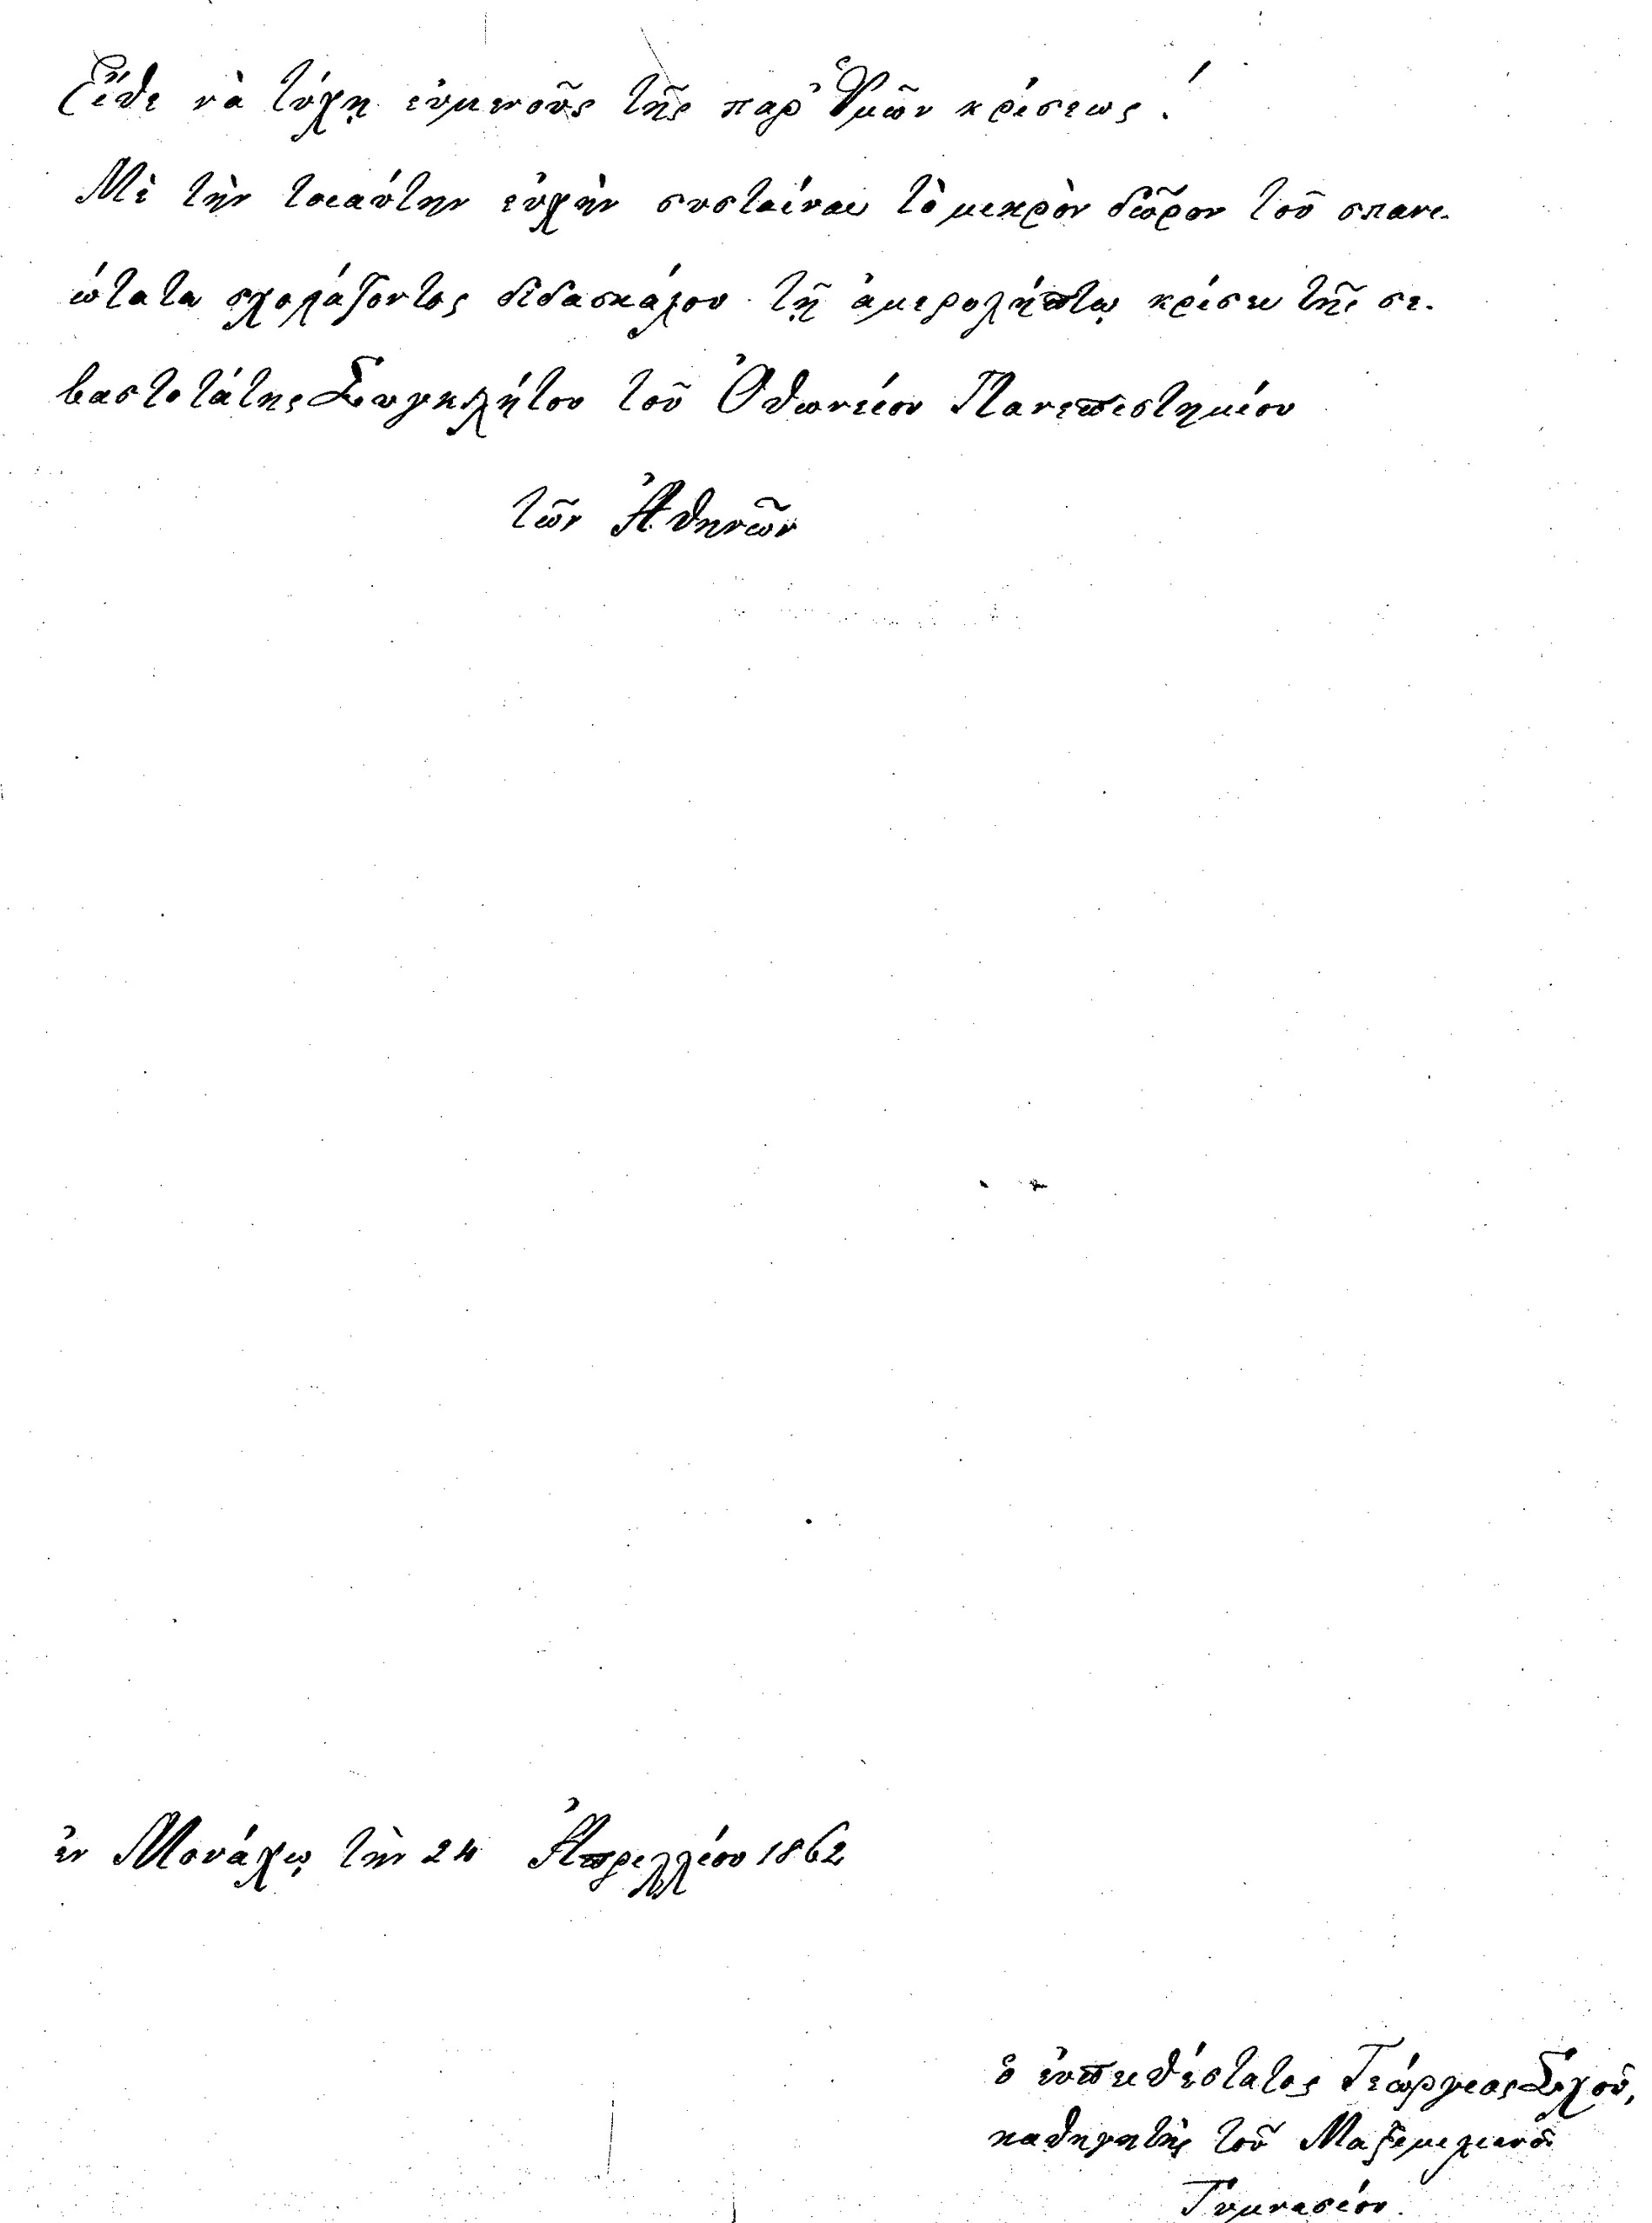 Εἴθε νὰ τύχῃ εὐμενοῦς τῆς παρ' Ὑμῶν κρίσεως!
Μὲ τὴν τοιαύτην εὐχὴν συσταίνω τὸ μικρὸν δῶρον τοῦ σπανι-
ώτατα σχολάζοντος διδασκάλου τῇ ἀμερολήπτῳ κρίσει τῆς σε-
βαστοτάτης Συγκλήτου τοῦ Ὀθωνείου Πανεπιστημίου
τῶν Ἀθηνῶν
ἐν Μονάχῳ τὴν 24 Ἀπριλλίου 1862
ὁ εὐπειθέστατος Γεώργιος
καθηγητὴς τοῦ Μαξιμιλιανοῦ
Γυμνασίου.